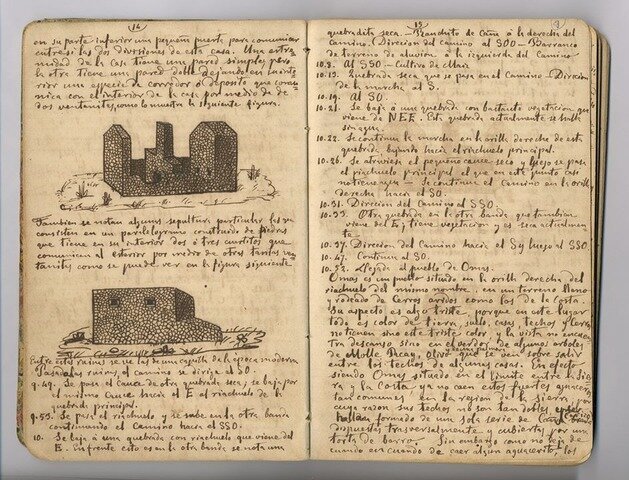 14
en su parte inferior un pequeña puerta para comunicar
entre si las dos divisiones de esta casa. Una extre-
midad de la casa tiene una pared simple, pero
la otra tiene un pared doble dejando en su inte-
rior una especie de corredor o deposito que comu-
nica con el interior de la casa por medio de
dos ventanitas, como lo muestra la siguiente figura.
Tambien se notan algunas sepulturas particulares que
consisten en un paralelogramo construido de piedras
que tiene en su interior dos o tres cuartitos que
comunican al esterior por medio de otras tantas ven-
tanitas como se puede ver en la figura siguiente
Entre estas ruinas se ve las de una capilla de la época moderna
Pasada las ruinas, el camino se dirije al SO.
9.49. Se pasa el cauce de otra quebrada seca; se baja por
el mismo cauce hácia el E al riachuelo de la
quebrada principal.
9.53. Se pasa el riachuelo y se sube en la otra banda
continuando el camino hácia el SSO.
10. Se baja á una quebrada con riachuelo que viene del
E. Enfrente esto es en la otra banda se nota una
15
quebradita seca. — Ranchito de Caña á la derecha del
Camino. Direccion del camino al SOO — Barranco
de terreno de aluvion á la izquierda del Camino
10.8. Al SSO — Cultivo de Maiz
10.13. Quebrada seca que se pasa en el Camino. Direccion
de la marcha al S.
10.19. Al SO.
10.21. Se baja á una quebrada con bastante vegetacion que
viene de NEE. Esta quebrada actualmente se halla
sin agua.
10.22. Se continua la marcha en la orilla derecha de esta
quebrada, bajando hácia el riachuelo principal.
10.26. Se atraviesa el pequeño cauce seco y luego se pasa
el riachuelo principal el que en este punto casi
no tiene agua — Se continua el Camino en la orilla
derecha hácia al SO.
10.31. Direccion del Camino al SSO.
10.33. Otra quebrada en la otra banda que tambien
viene del E, tiene vegetacion y es seca actualmen-
te.
10.37. Direccion del Camino hácia el S y luego al SSO.
10.47. Continua al SO.
10.52. Llegada al pueblo de Omas.
Omas es un pueblo situado en la orilla derecha del
riachuelo del mismo nombre, en un terreno llano
y rodeado de Cerros aridos como los de la Costa.
Su aspecto es algo triste, porque en este lugar
todo es color de tierra, suelo, casas, techos y cerros
no tienen sino este triste color y la vista no encuen-
tra descanso sino en el verdor de algunos arboles
de Molle, Pacay, olivo que se ven sobre salir
entre los techos de algunas casas. En efecto
siendo Omas situado en el limite entre la Sier-
ra y la Costa, ya no caen estos fuertes aguaceros
tan comunes en la region de la Sierra, por
cuya razon sus techos no son tan dobles
hallan formados de una sola serie de
dispuestas trasversalmente y cubiertas por una
torta de barro. Sin embargo como no deja de
cuando en cuando de caer algun aguacerito, los